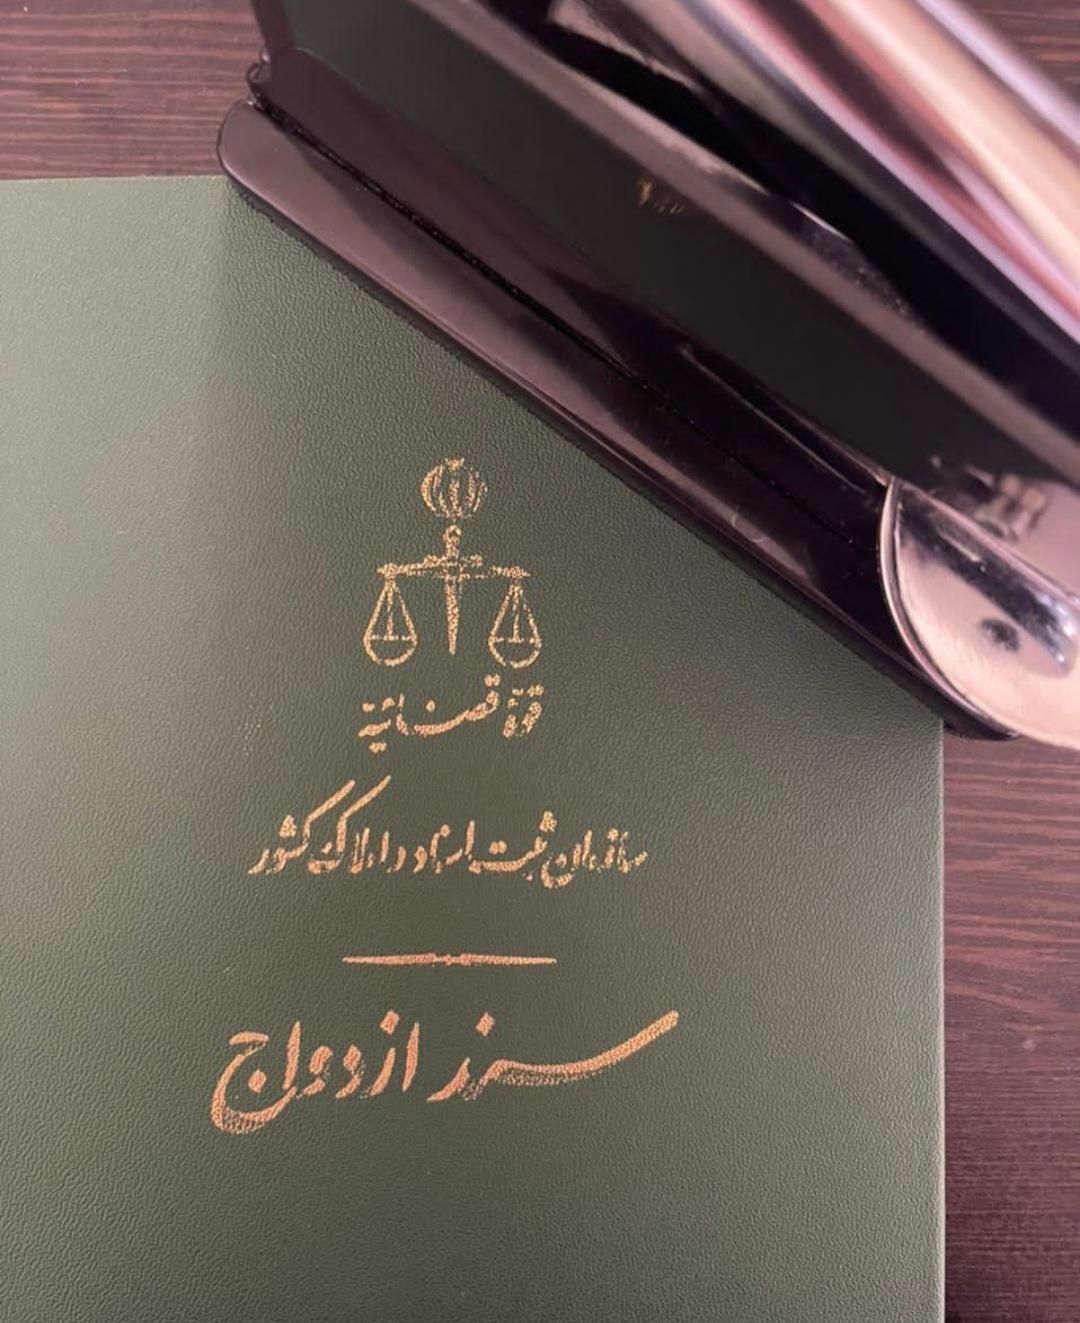 قوهٔ قضائیه
سازمان ثبت اسناد و املاک کشور
سند ازدواج